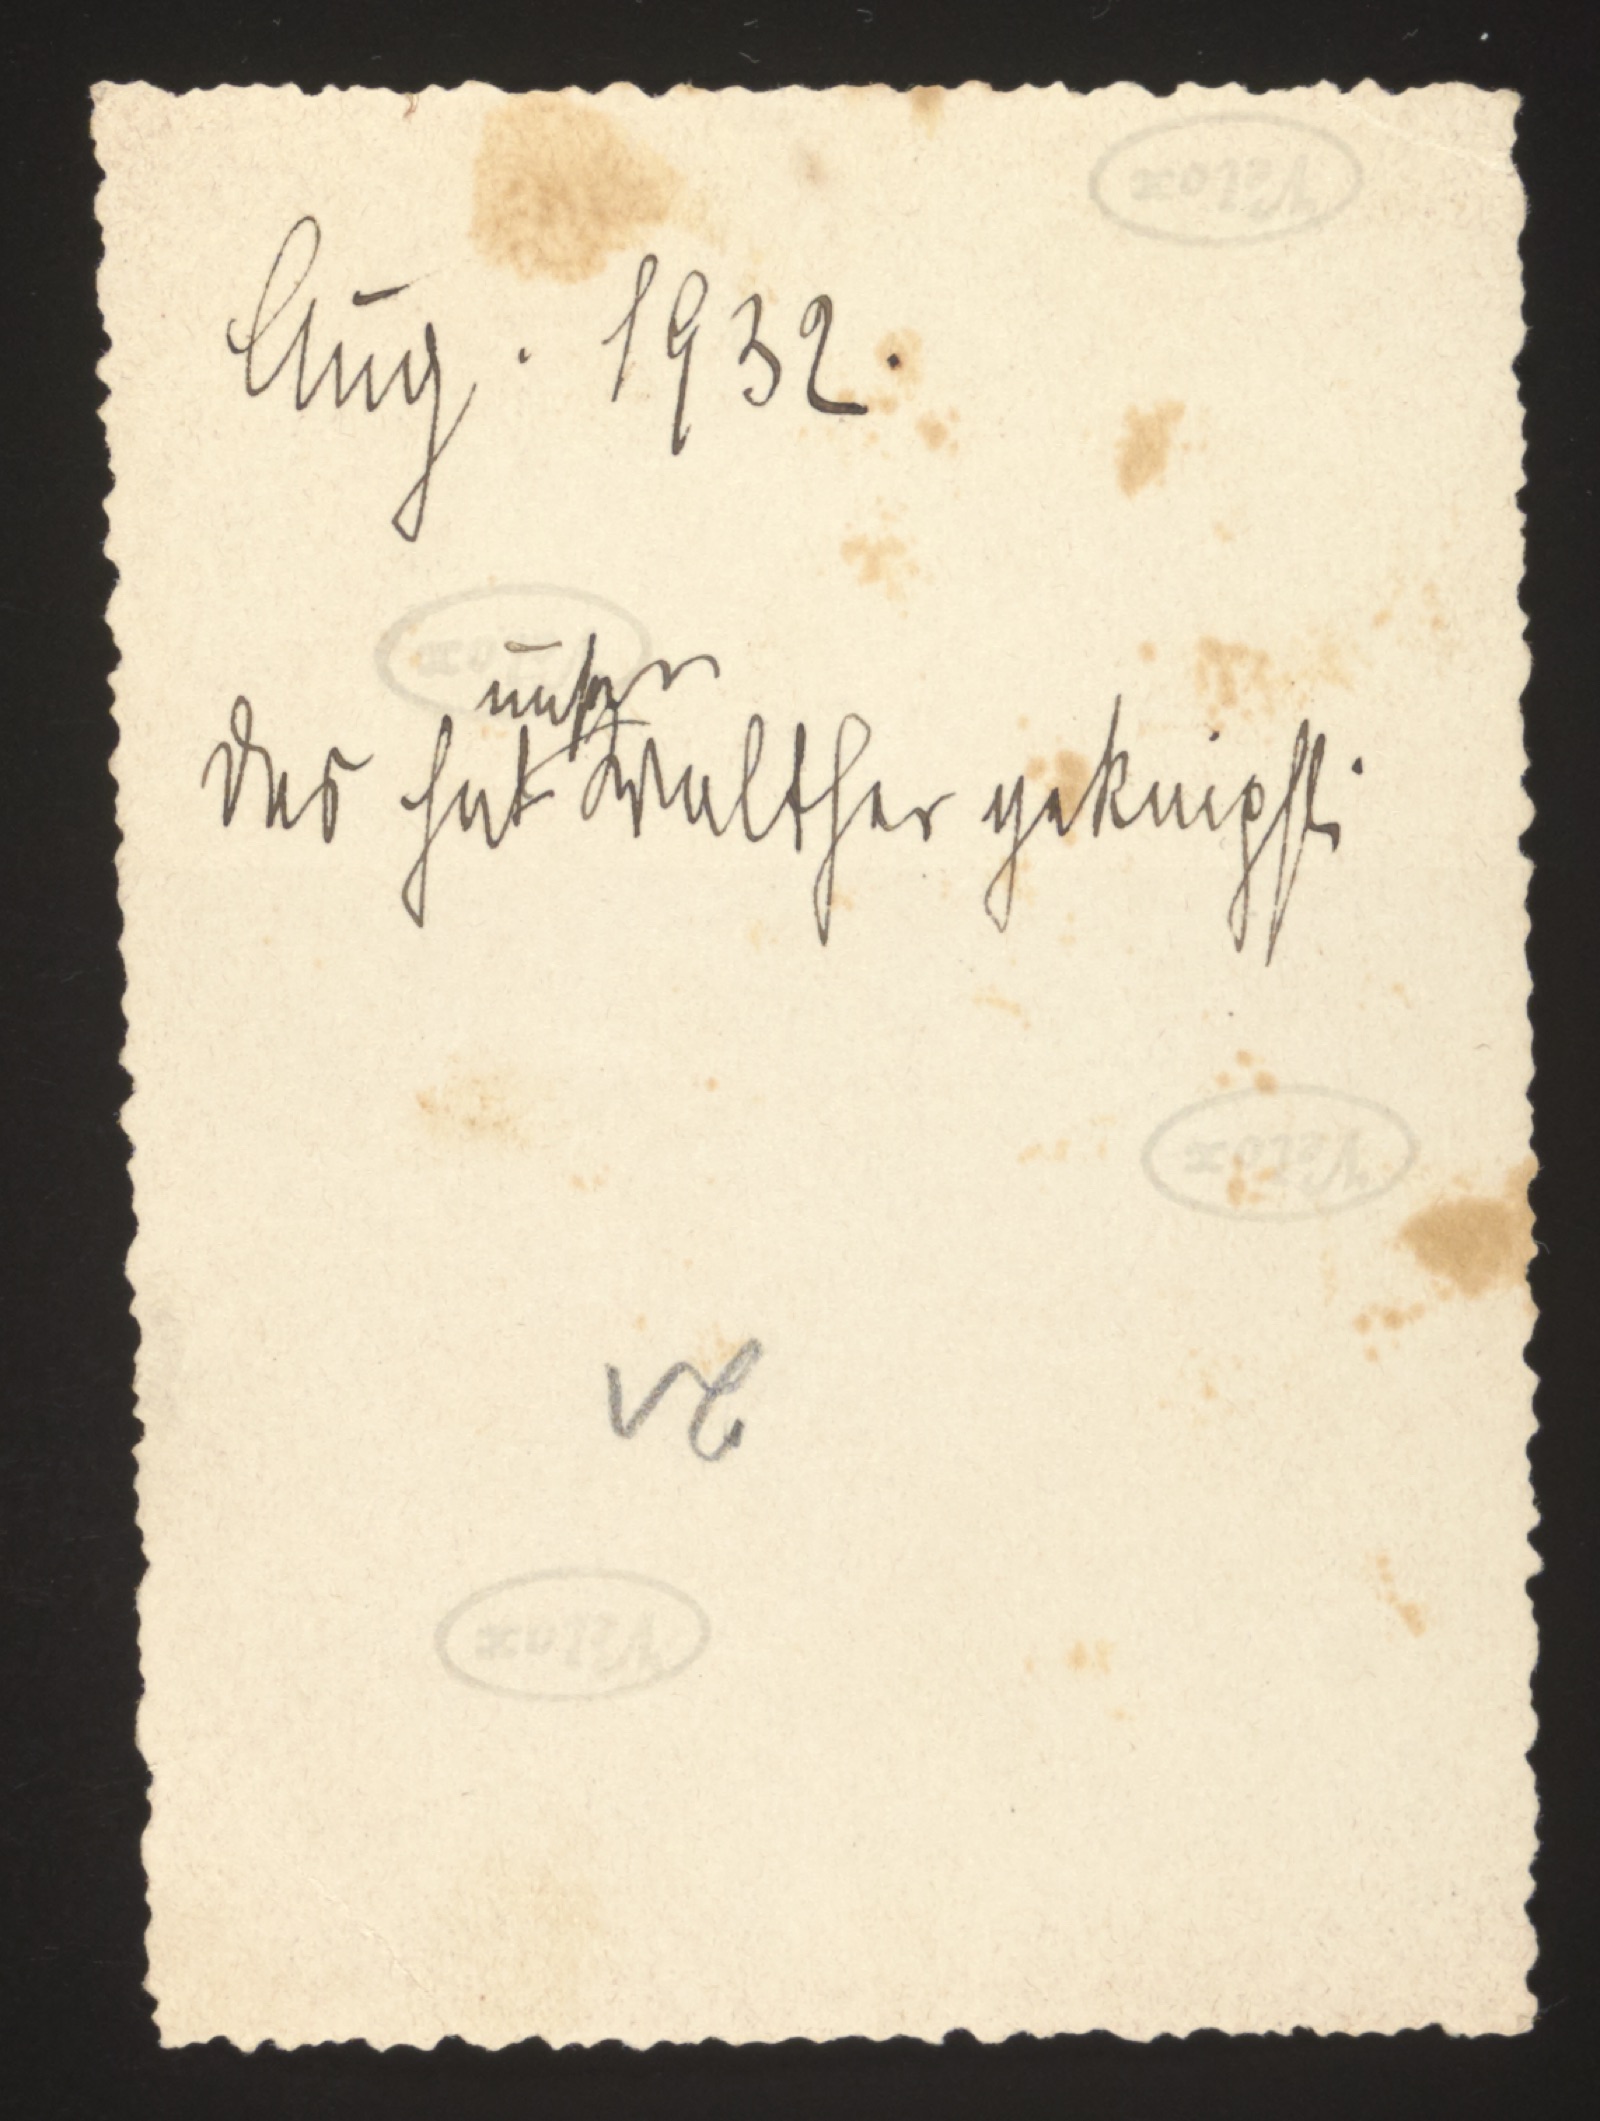 Velox
Aug. 1932.
Velox
unser
Das hat Walther geknipst.
Velox
Velox